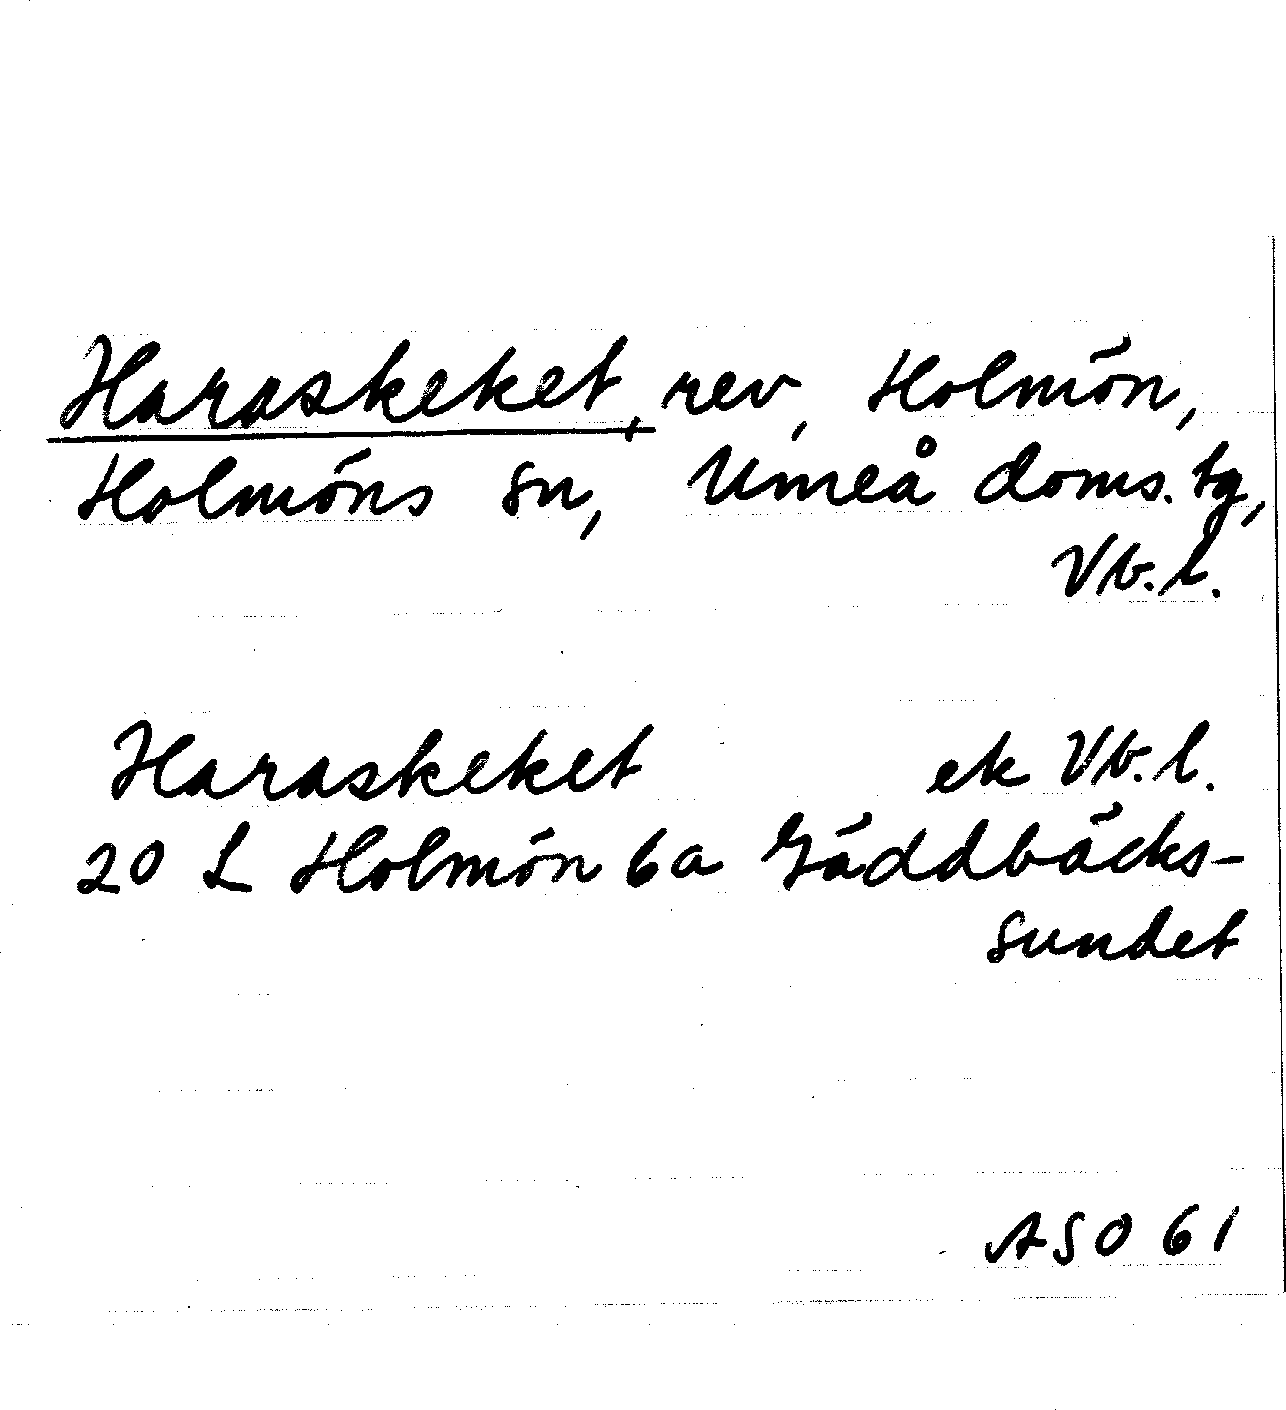 Haraskeket, rev, Holmön,
Holmöns sn, Umeå doms. tg,
Vb. l.
Haraskeket ek Vb. l.
20 L Holmön 6a Gäddbäcks-
sundet
ASO 61